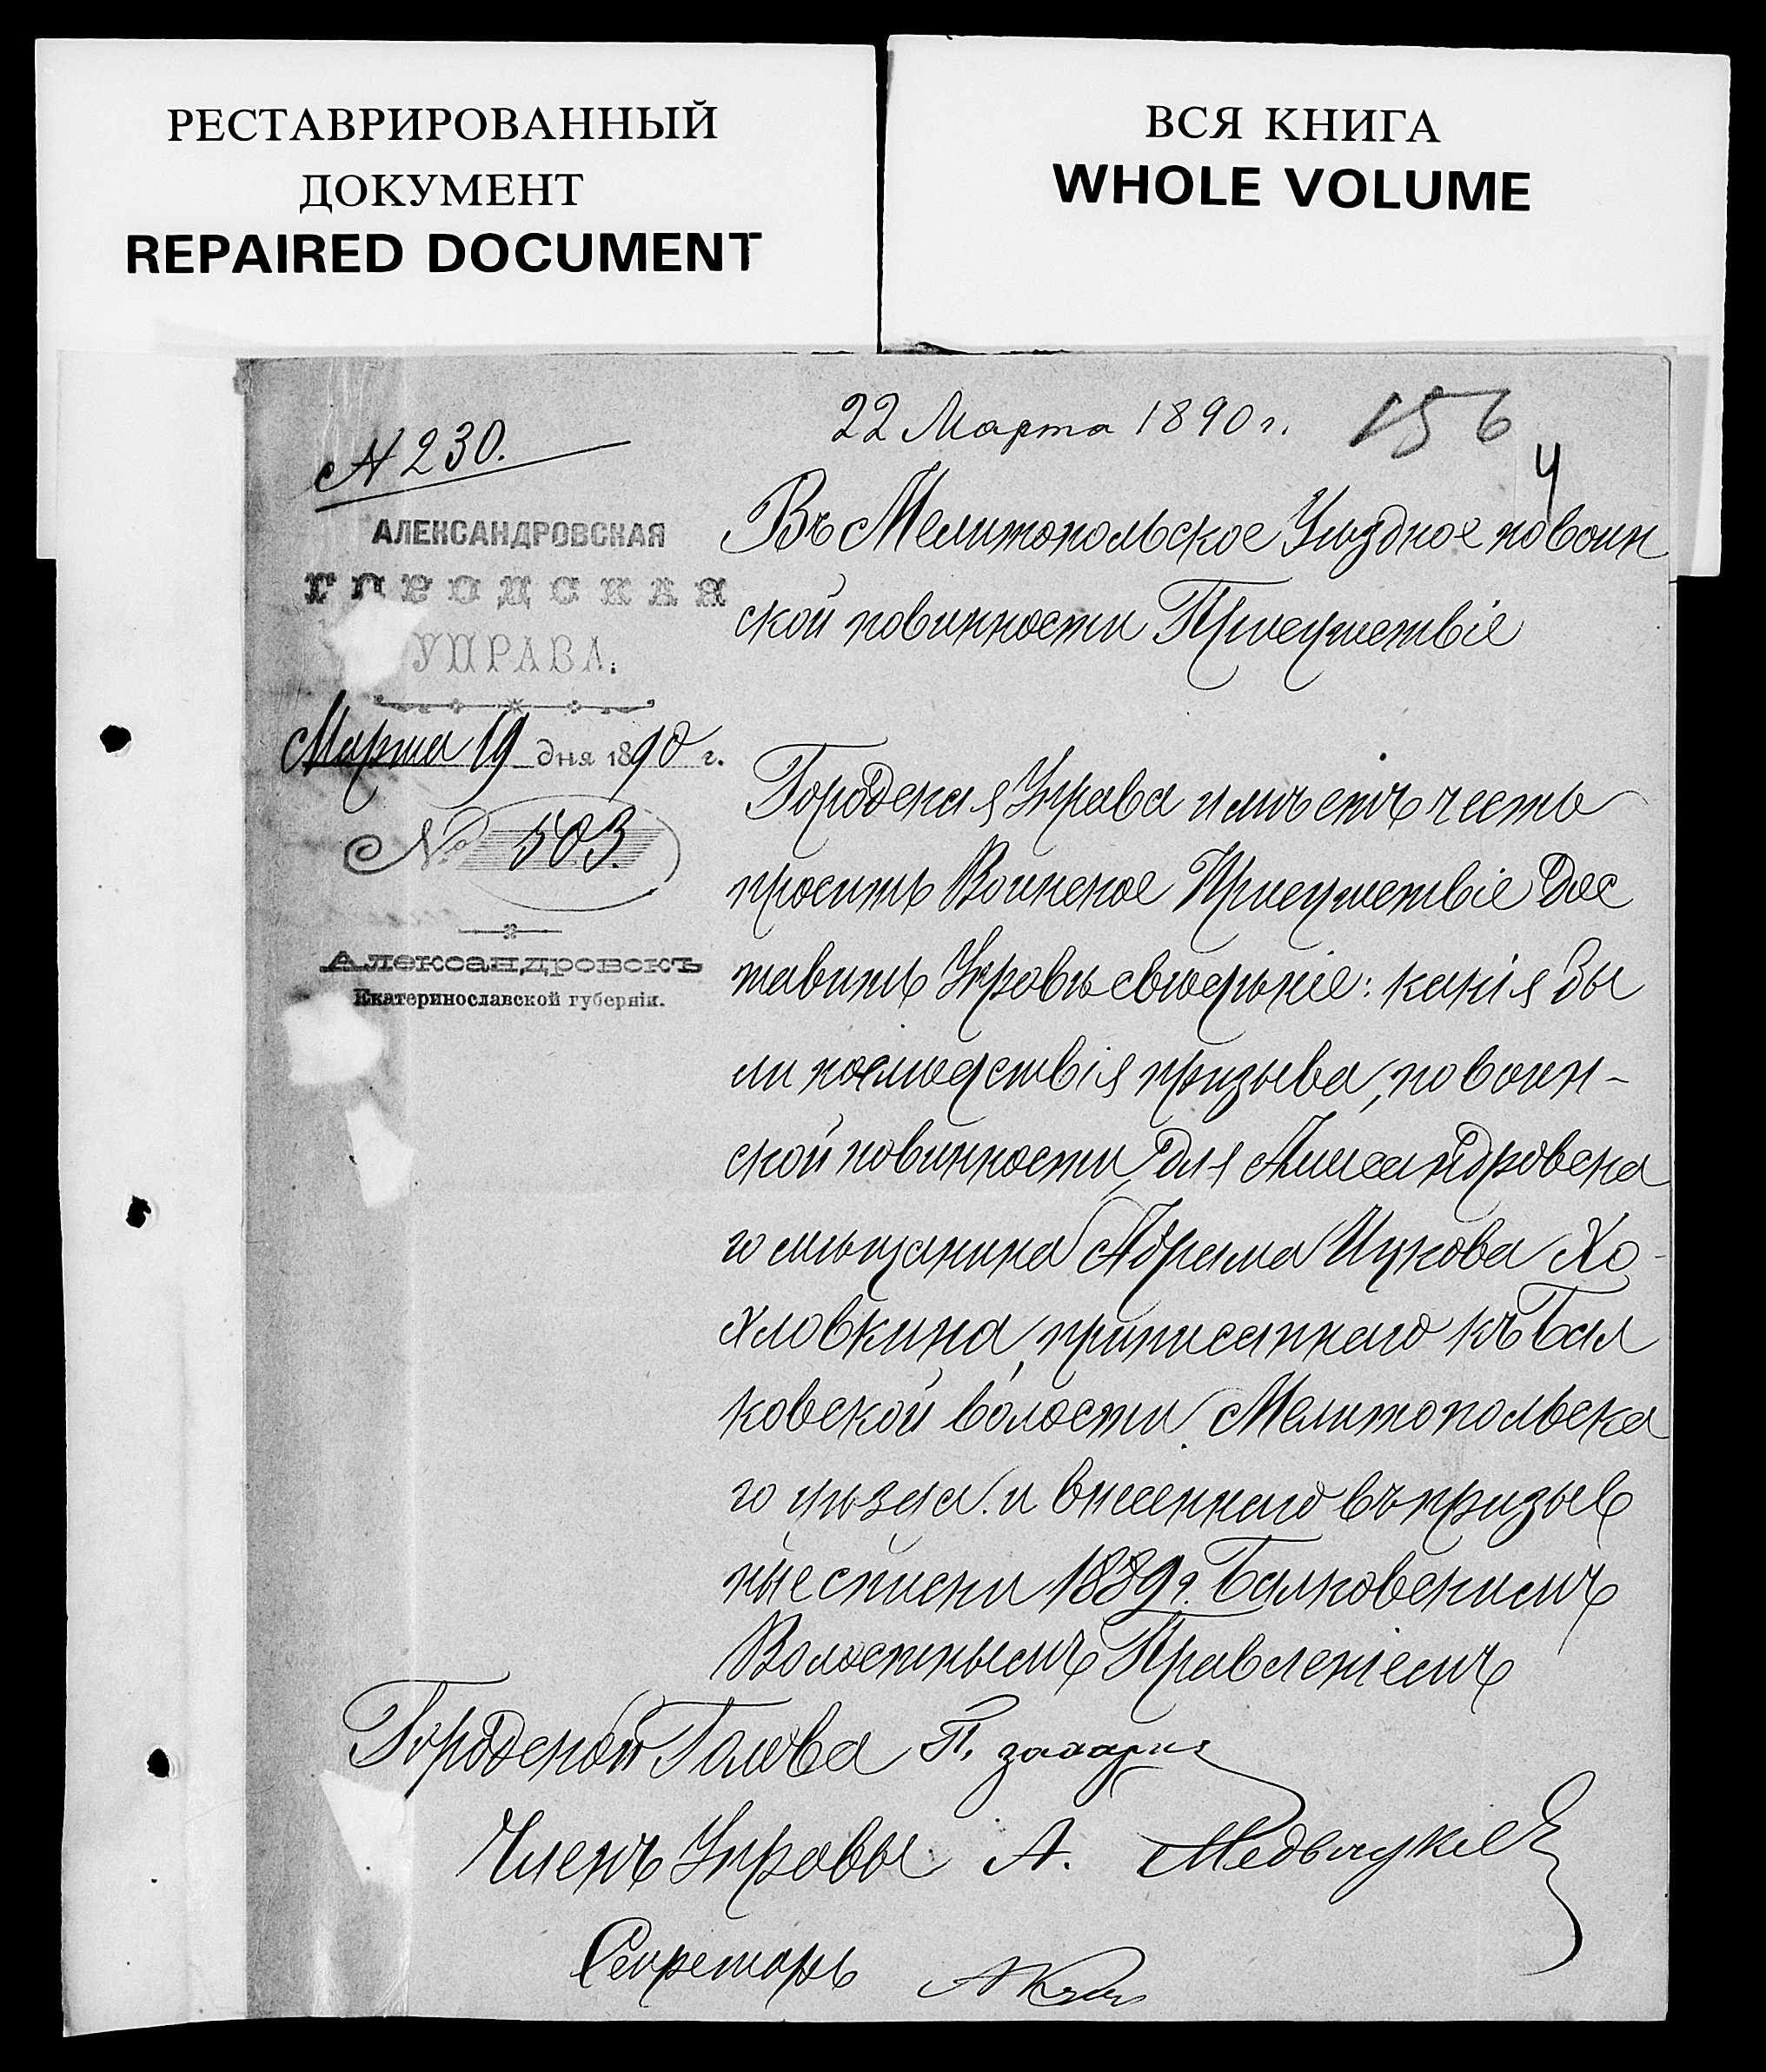 РЕСТАВРИРОВАННЫЙ
ДОКУМЕНТ
REPAIRED DOCUMENT
ВСЯ КНИГА
WHOLE VOLUME
22 Марта 1890 г.
156
4
№ 230.
АЛЕКСАНДРОВСКАЯ
ГОРОДСКАЯ
УПРАВА.
Марта 19 дня 1890 г.
№ 503.
Александровскъ
Екатеринославской губерніи.
Въ Мелитопольское Уѣздное по воин
ской повинности Присутствіе
Городская Управа имѣетъ честь
просить Воинское Присутствіе дос
тавить Управѣ свѣдѣніе: какія бы
ли послѣдствія призыва, по воин-
ской повинности, для Александровска
го мѣщанина Абрама Ицкова Хо-
хловкина, приписаннаго къ Бал
ковской волости Мелитопольска
го уѣзда и внесеннаго въ призыв
ные списки 1889 г. Балковскимъ
Волостнымъ Правленіемъ
Городской Голова П.
Членъ Управы А.
Секретарь